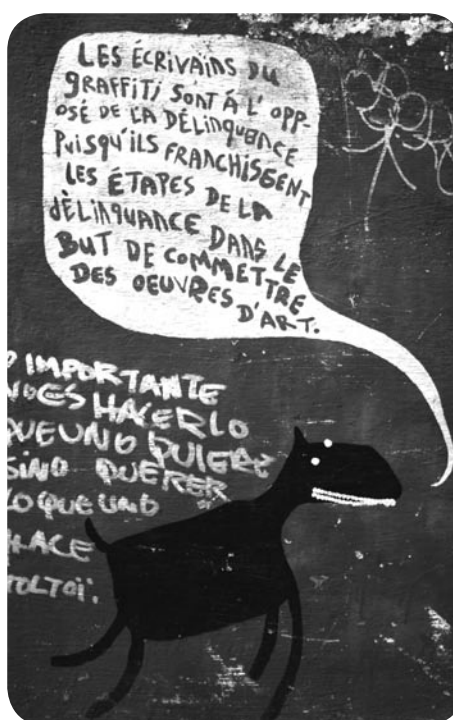 LES ÉCRIVAINS DU
GRAFFITI SONT À L'OPP-
OSÉ DE LA DÉLINQUANCE
PUISQU'ILS FRANCHISSENT
LES ÉTAPES DE LA
DÈLINQUANCE DANS LE
BUT DE COMMETTRE
DES OEUVRES D'ART.
IMPORTANTE
NO ES HACER LO
QUE UNO QUIERE
SINO QUERER
LO QUE UNO
HACE
TOLTOÏ.